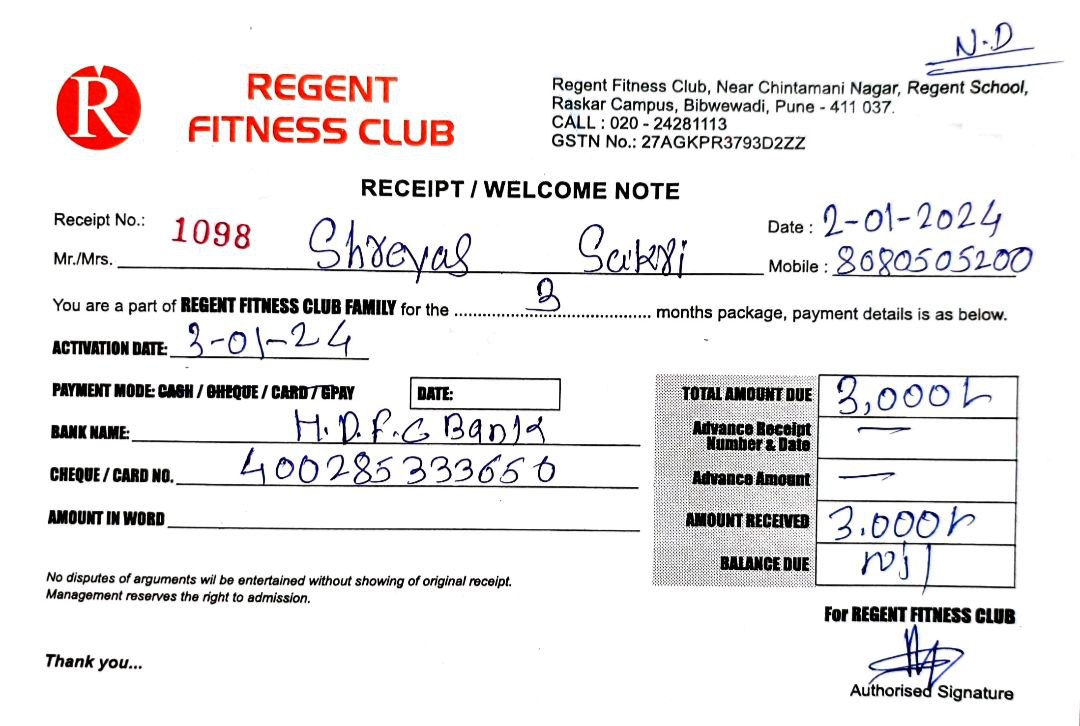 N.D
R
REGENT
FITNESS CLUB
Regent Fitness Club, Near Chintamani Nagar, Regent School,
Raskar Campus, Bibwewadi, Pune - 411 037.
CALL : 020 - 24281113
GSTN No.: 27AGKPR3793D2ZZ
RECEIPT / WELCOME NOTE
Receipt No.: 1098
Date : 2-01-2024
Mr./Mrs. Shreyas Sakri
Mobile : 8080505200
You are a part of REGENT FITNESS CLUB FAMILY for the 3 months package, payment details is as below.
ACTIVATION DATE: 3-01-24
PAYMENT MODE: CASH / CHEQUE / CARD / GPAY DATE:
TOTAL AMOUNT DUE 3,000/-
BANK NAME: H.D.F.C Bank
Advance Receipt
Number & Date —
CHEQUE / CARD NO. 400285333650
Advance Amount —
AMOUNT IN WORD
AMOUNT RECEIVED 3.000/-
BALANCE DUE nil
No disputes of arguments wil be entertained without showing of original receipt.
Management reserves the right to admission.
For REGENT FITNESS CLUB
Thank you...
Authorised Signature